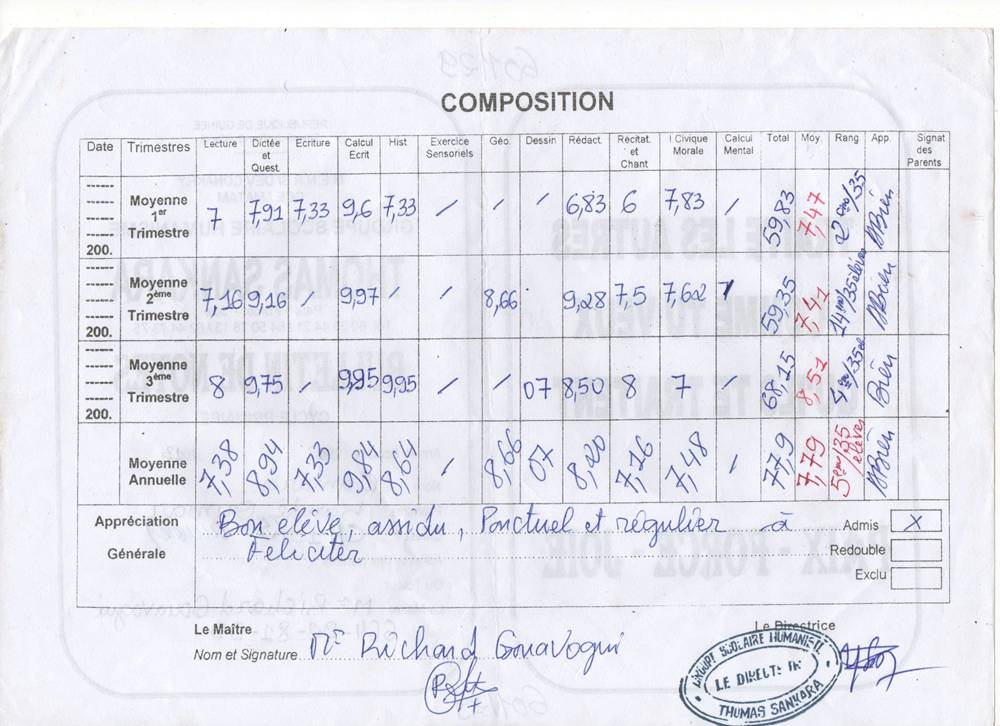 COMPOSITION
Date Trimestres Lecture Dictée et Quest. Ecriture Calcul Ecrit Hist Exercice Sensoriels Géo. Dessin Rédact. Récitat. et Chant I Civique Morale Calcul Mental Total Moy. Rang App. Signat des Parents
200. Moyenne 1er Trimestre 7 7,91 7,33 9,6 7,33 / / / 6,83 6 7,83 / 59,83 7,47 2ème/35 ABien
200. Moyenne 2ème Trimestre 7,16 9,16 / 9,97 / / 8,66 9,28 7,5 7,62 59,35 7,41 14ème/35élèves ABien
200. Moyenne 3ème Trimestre 8 9,75 / 9,95 9,95 / / 07 8,50 8 7 / 68,15 8,51 4è/35 Bien
Moyenne Annuelle 7,38 8,94 7,33 9,84 8,64 / 8,66 07 8,20 7,16 7,48 / 77,9 7,79 5ème/35 élèves ABien
Appréciation Générale Bon élève, assidu, Ponctuel et régulier à
Féliciter
Admis X
Redouble
Exclu
Le Maître
Le Directrice
Nom et Signature Mr Richard Gouavogui
GROUPE SCOLAIRE HUMANISTE
LE DIRECTEUR
THOMAS SANKARA